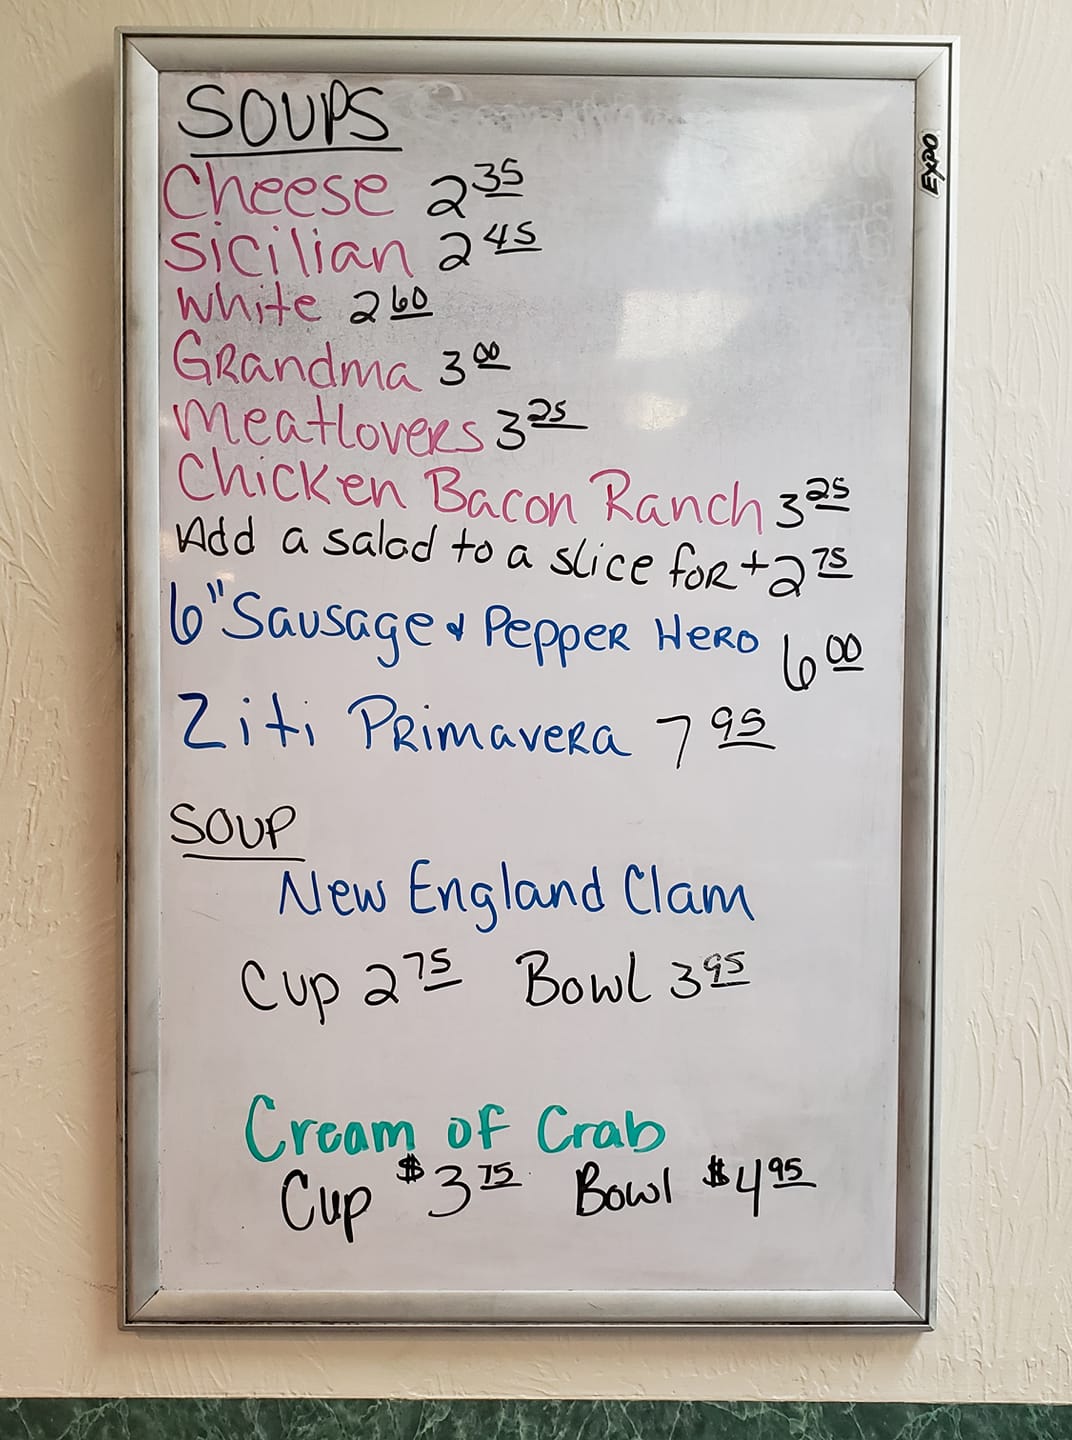 SOUPS
Cheese 2 35
Sicilian 2 45
White 2 60
Grandma 3 00
Meatlovers 3 25
Chicken Bacon Ranch 3 25
Add a salad to a slice for + 2 75
6" Sausage & Pepper Hero 6 00
Ziti Primavera 7 95
SOUP
New England Clam
Cup 2 75 Bowl 3 95
Cream of Crab
Cup $3 75 Bowl $4 95
EXPO